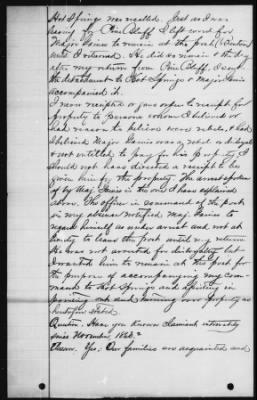 Hot Springs was recalled. Just as I was
leaving for Pine Bluff I left word for
Major Innis to remain at the post (Benton)
until I returned. He did so remain & the day
after my return from Pine Bluff, I sent
the detachment to Hot Springs & Major Innis
accompanied it.
I now receipt or gave orders to receipt for
property to persons whom I believed or
had reason to believe were rebels, & had
I believed Major Innis was a rebel or disloyal
& not entitled to pay for his property I
should not have directed a receipt to be
given him for the property. The arrest spoken
of by Maj. Innis is the one I have explained
above. The officer in command of the post
in my absence notified Maj. Innis to
regard himself as under arrest and not at
liberty to leave the post until my return
He was not arrested for disloyalty but
I wanted him to remain at the post for
the purpose of accompanying my com-
mand to Hot Springs and assisting in
pointing out and turning over property as
heretofore stated.
Question. Have you known claimant intimately
since November 1863?
Answer. Yes; Our families are acquainted and